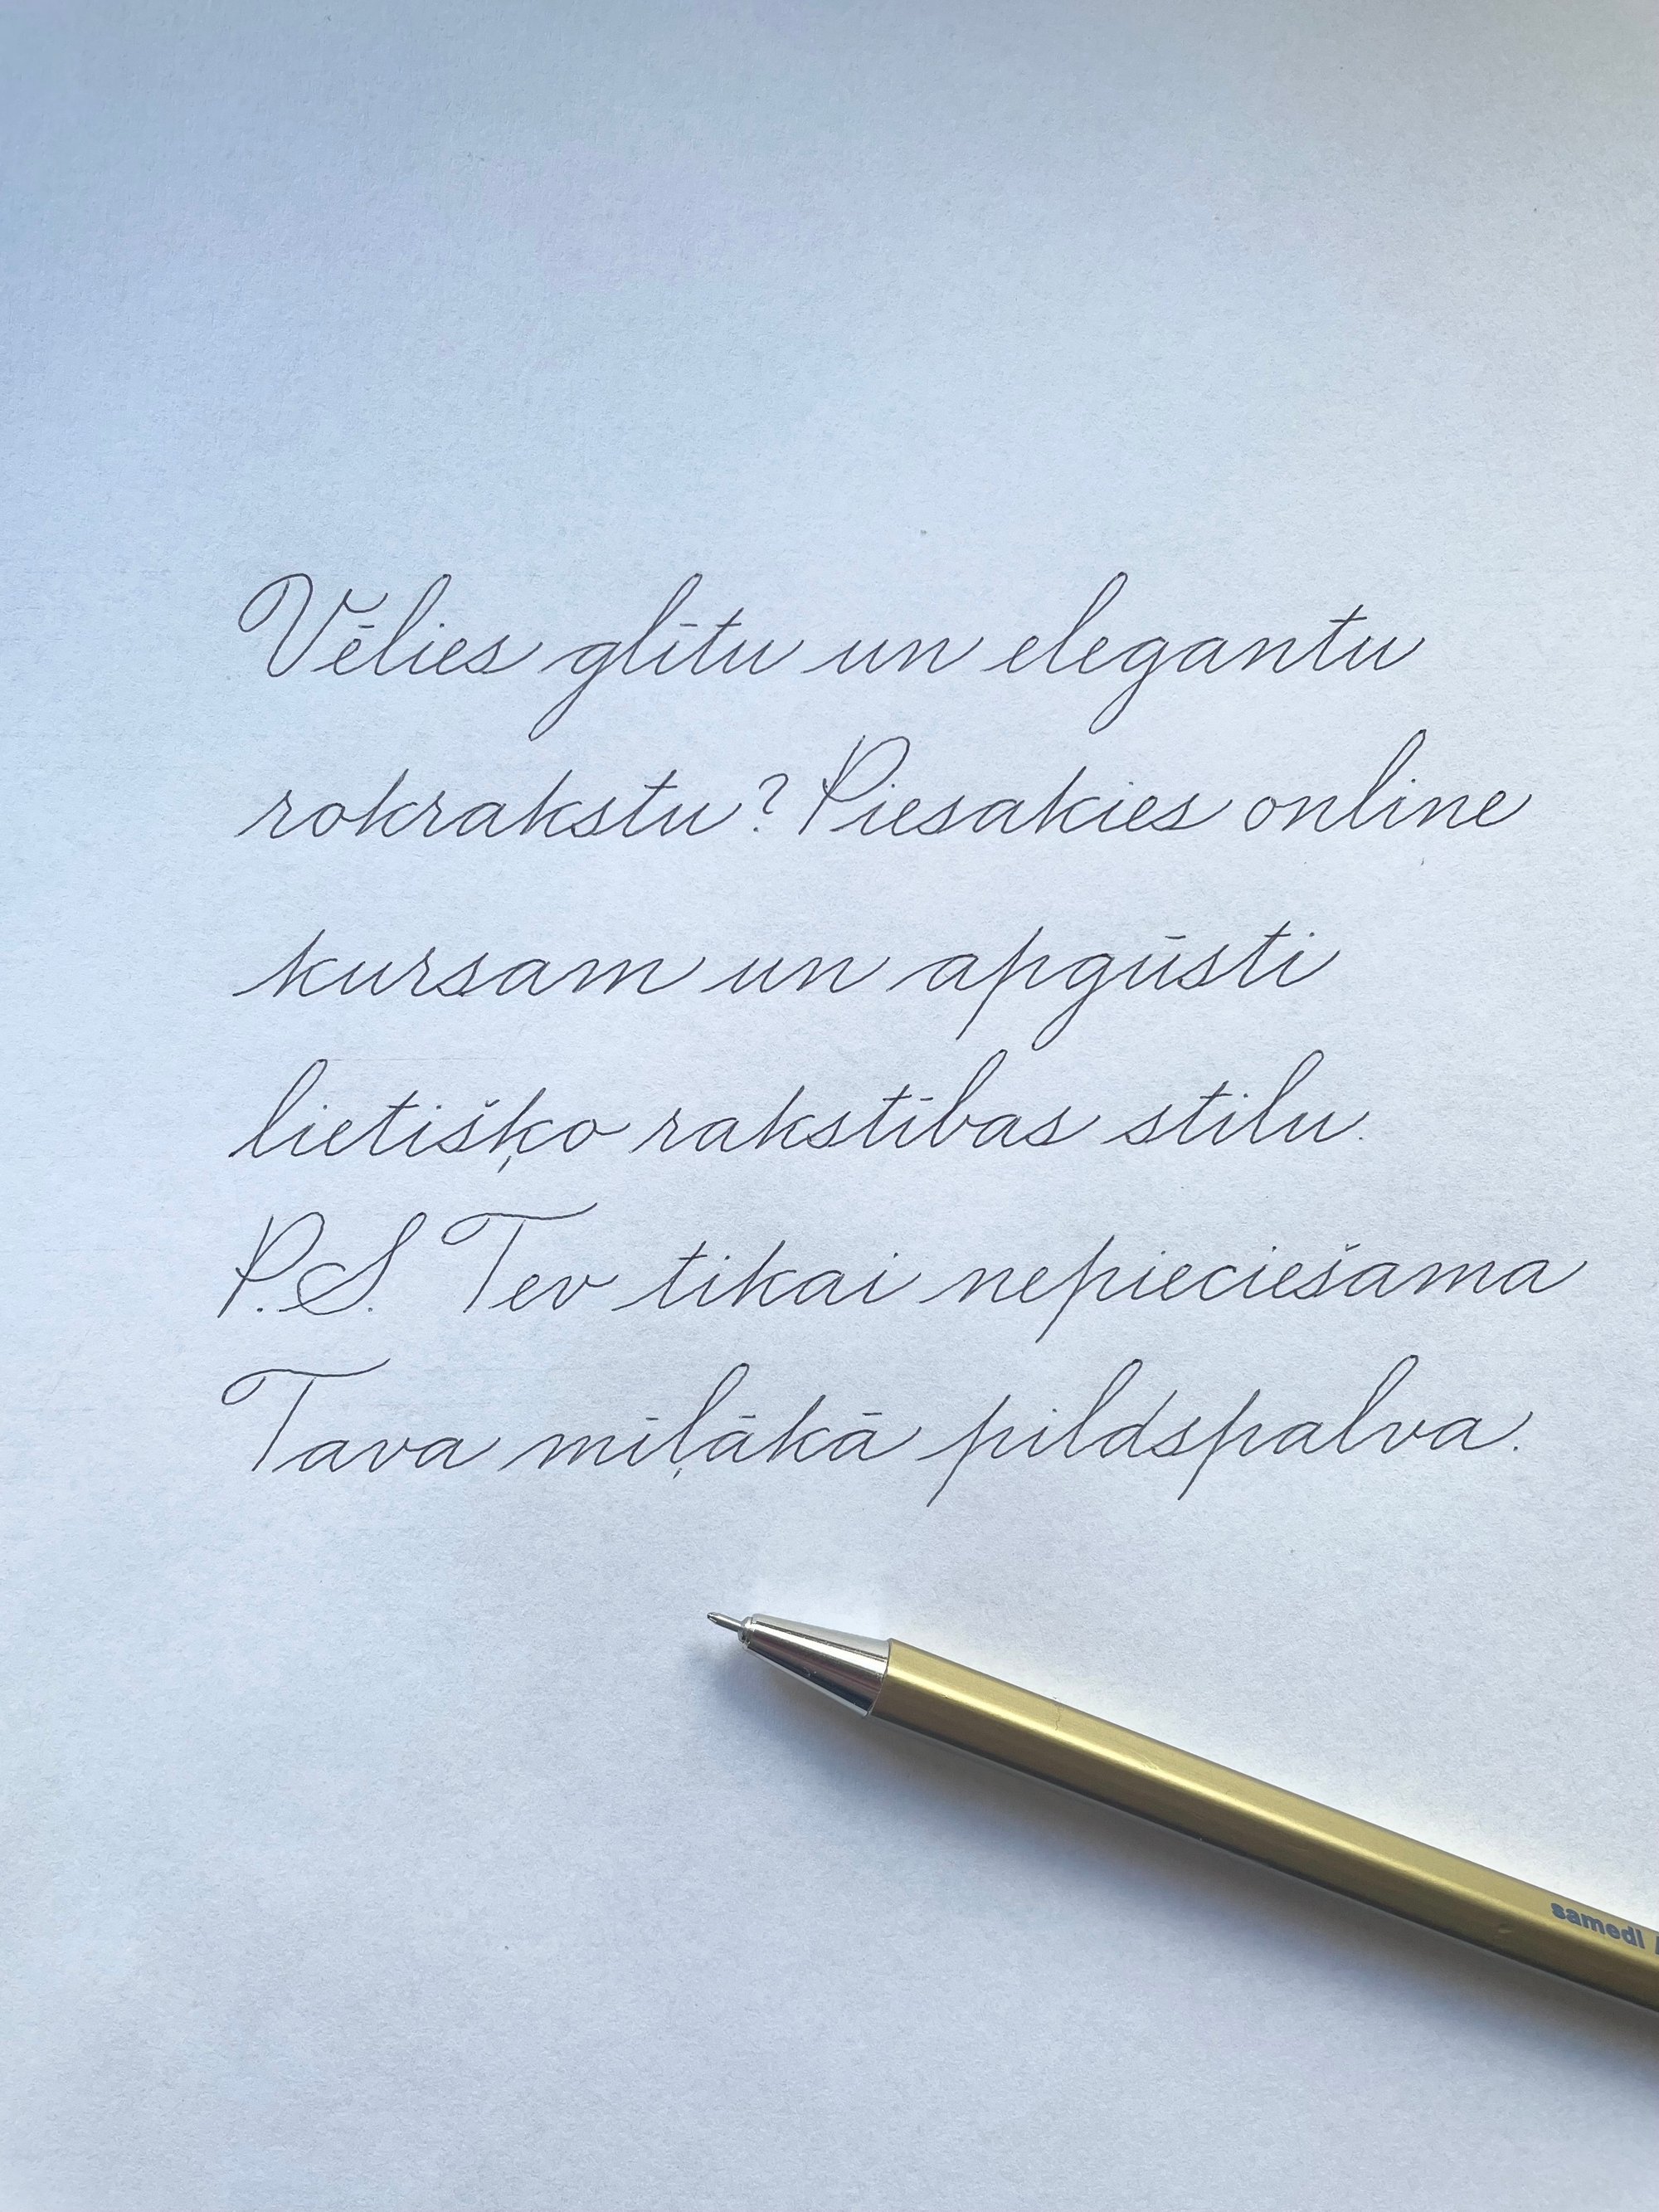 Vēlies glītu un elegantu
rokrakstu? Piesakies online
kursam un apgūsti
lietišķo rakstības stilu.
P.S. Tev tikai nepieciešama
Tava mīļākā pildspalva.
samedi